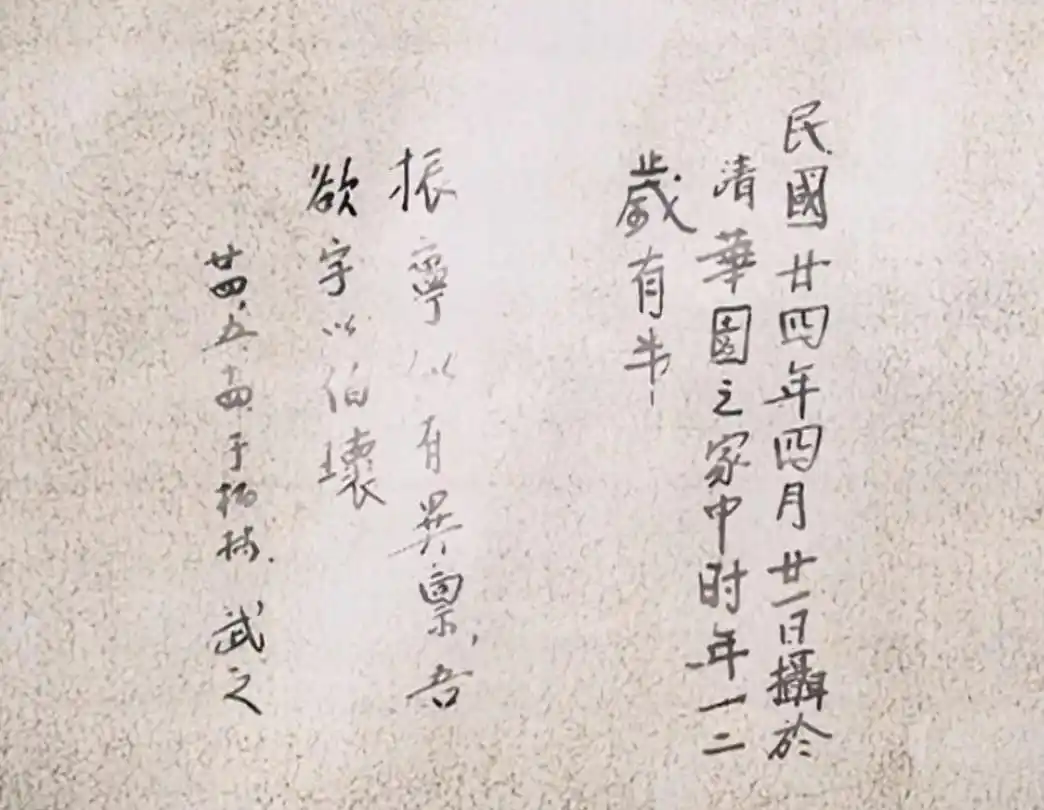 民國廿四年四月廿一日攝於
清華園之家中时年一二
歲有半
振寧以有異禀,吾
欲字以伯壞
廿四、五、十四、于柏林. 武之